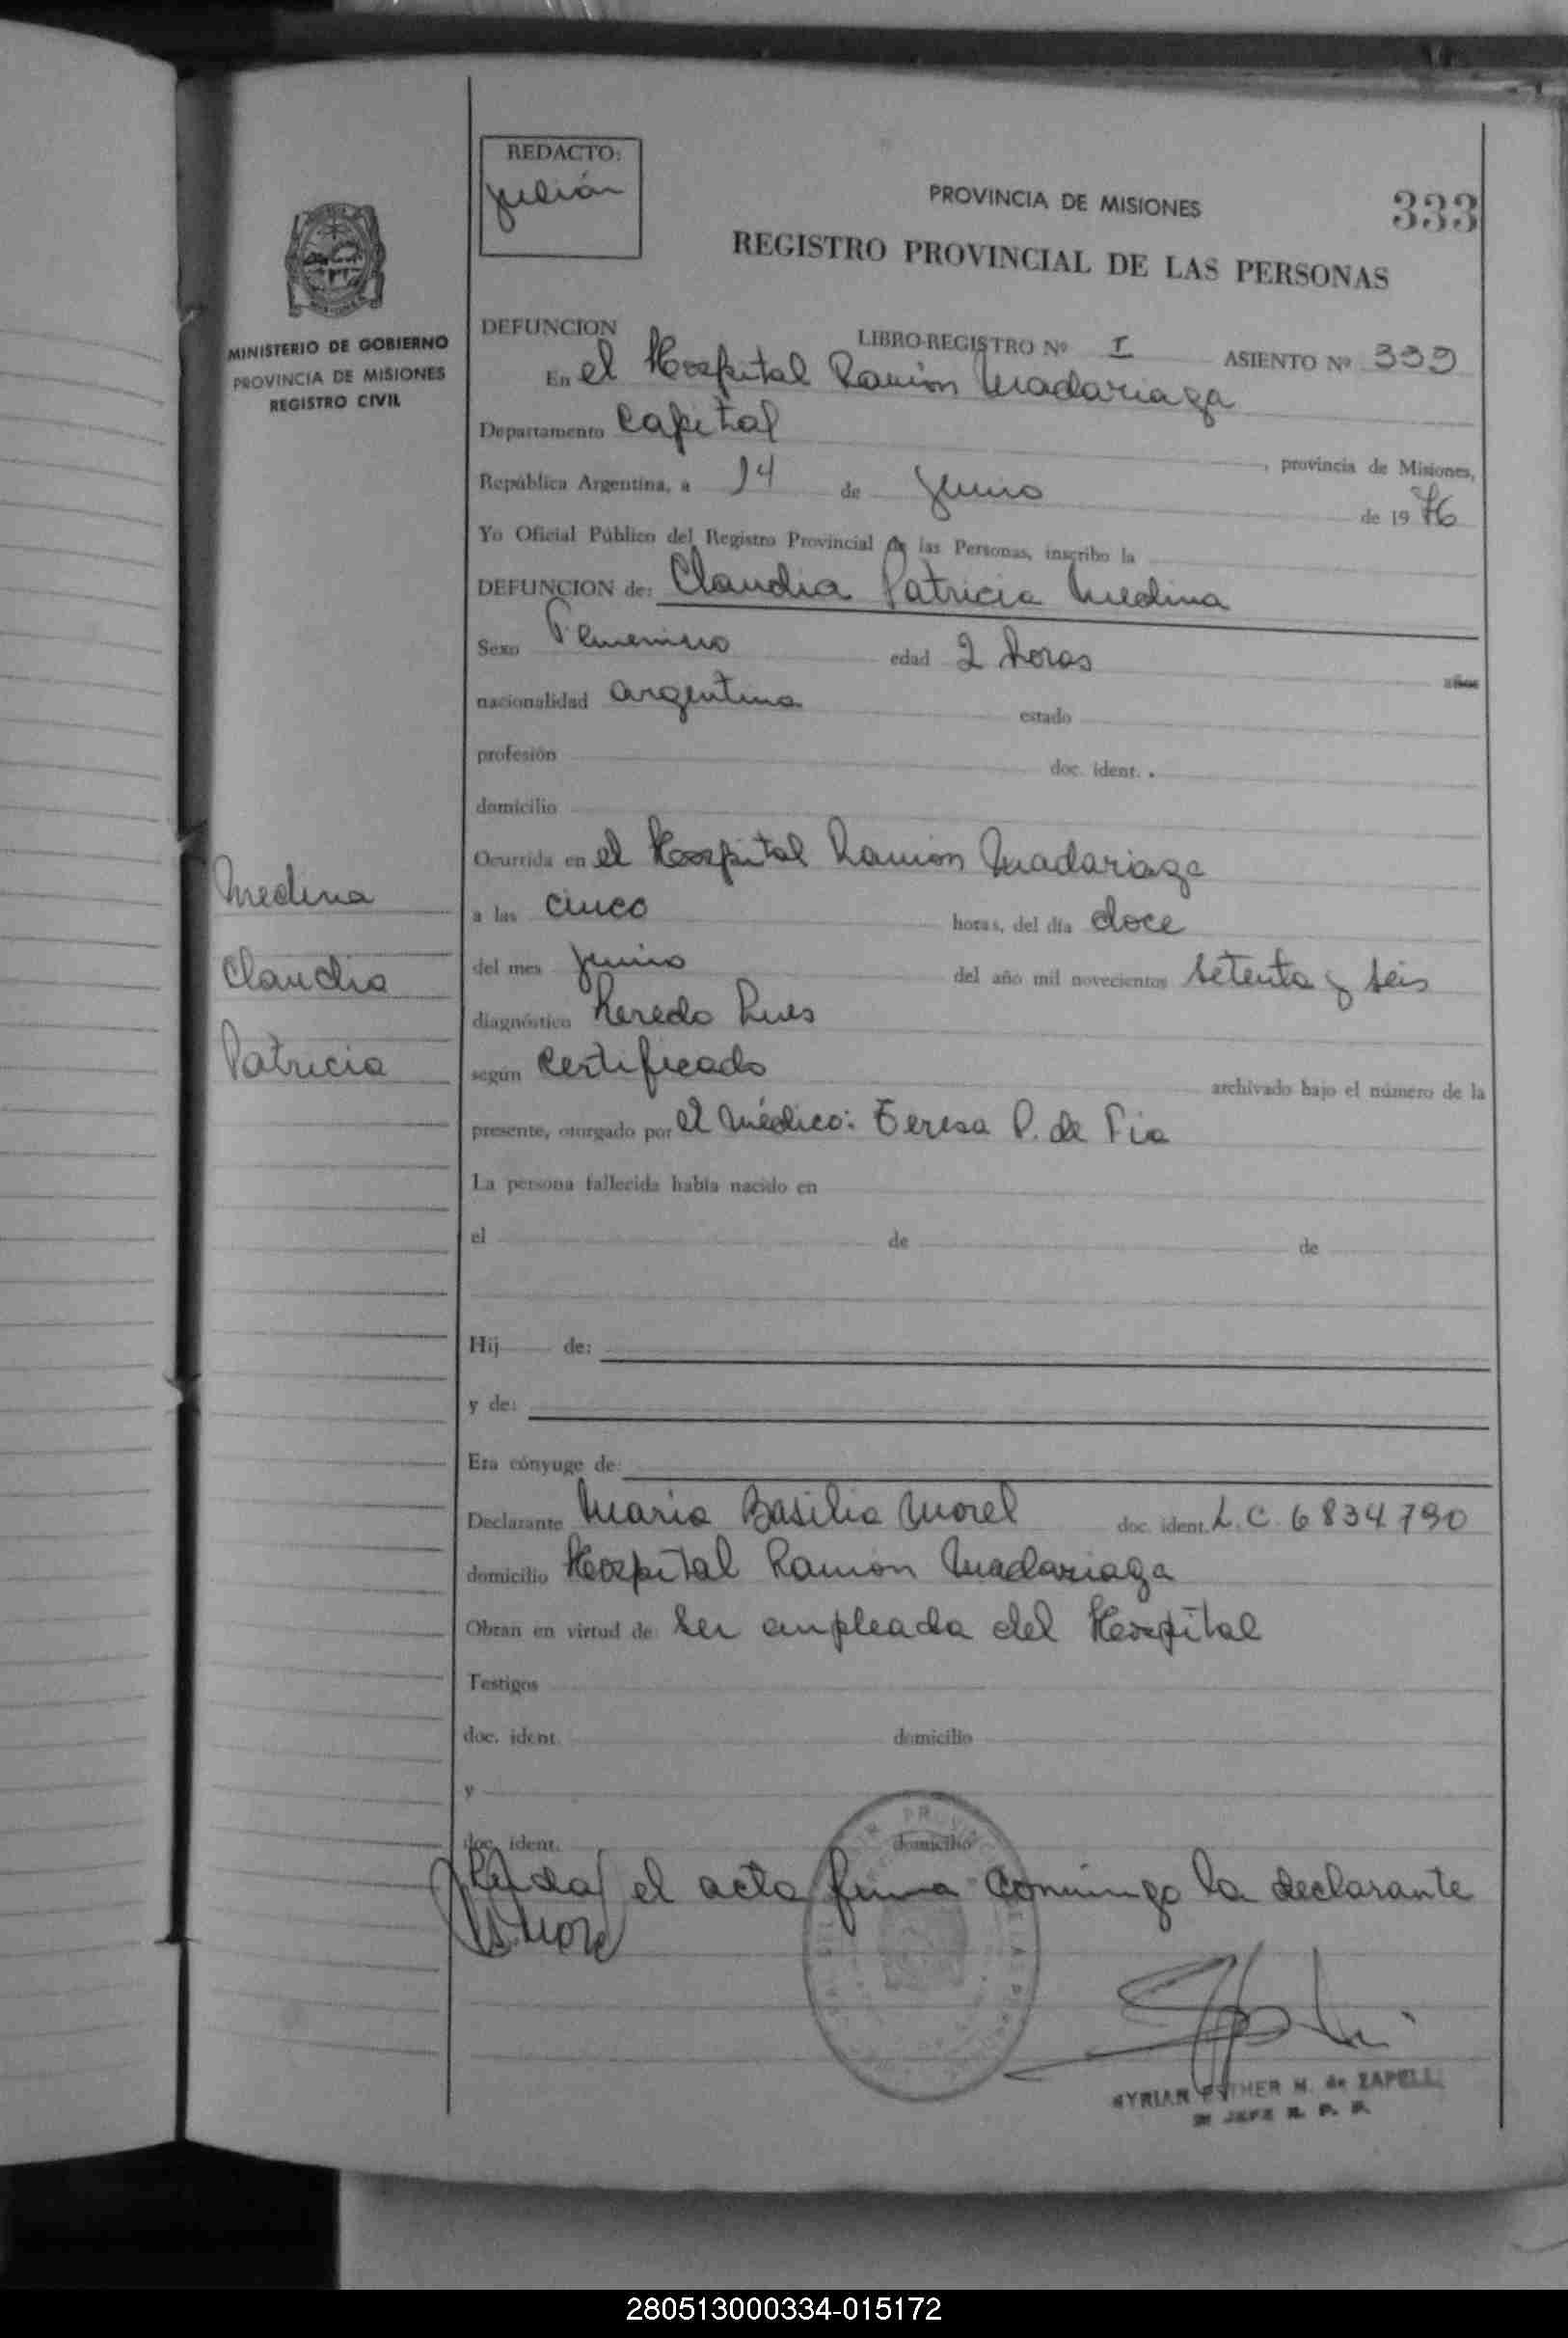 REDACTO:
Julián
PROVINCIA DE MISIONES
333
REGISTRO PROVINCIAL DE LAS PERSONAS
MINISTERIO DE GOBIERNO
PROVINCIA DE MISIONES
REGISTRO CIVIL
DEFUNCION LIBRO-REGISTRO Nº I ASIENTO Nº 339
En el Hospital Ramón Madariaga
Departamento Capital, provincia de Misiones,
República Argentina, a 14 de Junio de 1976
Yo Oficial Público del Registro Provincial de las Personas, inscribo la
DEFUNCION de: Claudia Patricia Medina
Sexo Femenino edad 2 horas años
nacionalidad argentina estado
profesión doc. ident.
domicilio
Ocurrida en el Hospital Ramón Madariaga
a las cinco horas, del día doce
del mes Junio del año mil novecientos setenta y seis
diagnóstico Heredo Lues
según certificado archivado bajo el número de la
presente, otorgado por el médico: Teresa P. de Pia
La persona fallecida había nacido en
el de de
Hij de:
y de:
Era cónyuge de:
Declarante Maria Basilia Morel doc. ident. L.C. 6834790
domicilio Hospital Ramón Madariaga
Obran en virtud de ser empleada del Hospital
Testigos
doc. ident. domicilio
y
doc. ident. domicilio
Leída el acta firma conmigo la declarante
Medina
Claudia
Patricia
MYRIAN ESTHER M. de ZAPELLI
JEFE R. P. P.
280513000334-015172